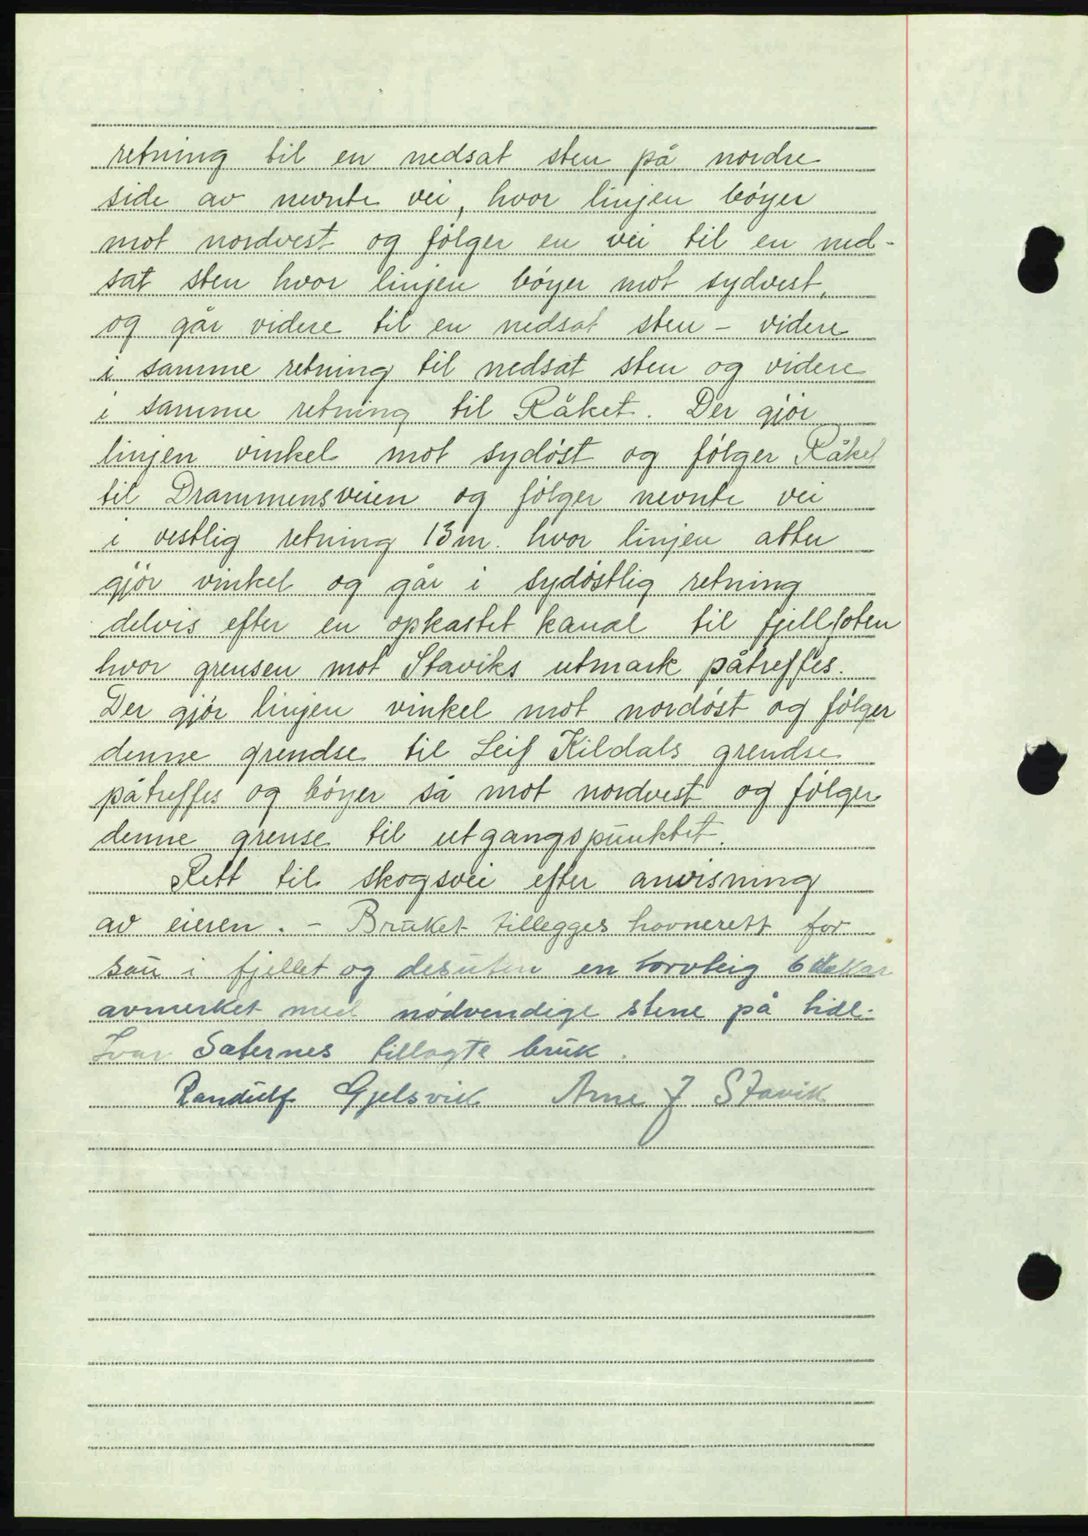 retning til en nedsat sten på nordre
side av nevnte vei, hvor linjen bøyer
mot nordvest og følger en vei til en ned-
sat sten hvor linjen bøyer mot sydvest,
og går videre til en nedsat sten - videre
i samme retning til nedsat sten og videre
i samme retning til Råket. Der gjör
linjen vinkel mot sydöst og følger Råket
til Drammensveien og følger nevnte vei
i vestlig retning 13 m. hvor linjen atter
gjör vinkel og går i sydöstlig retning
delvis efter en opkastet kanal til fjellfoten
hvor grensen mot Staviks utmark påtreffes.
Der gjör linjen vinkel mot nordöst og følger
denne grendse til Leif Kildals grendse
påtreffes og bøyer så mot nordvest og følger
denne grense til utgangspunktet.
Rett til skogsvei efter anvisning
av eieren. - Bruket tillegges havnerett for
sau i fjellet og desuten en torvteig 6
avmerket med nødvendige stene på tidl.
Ivar Saternes tillagte bruk.
Randulf Gjelsvik Arne J Stavik